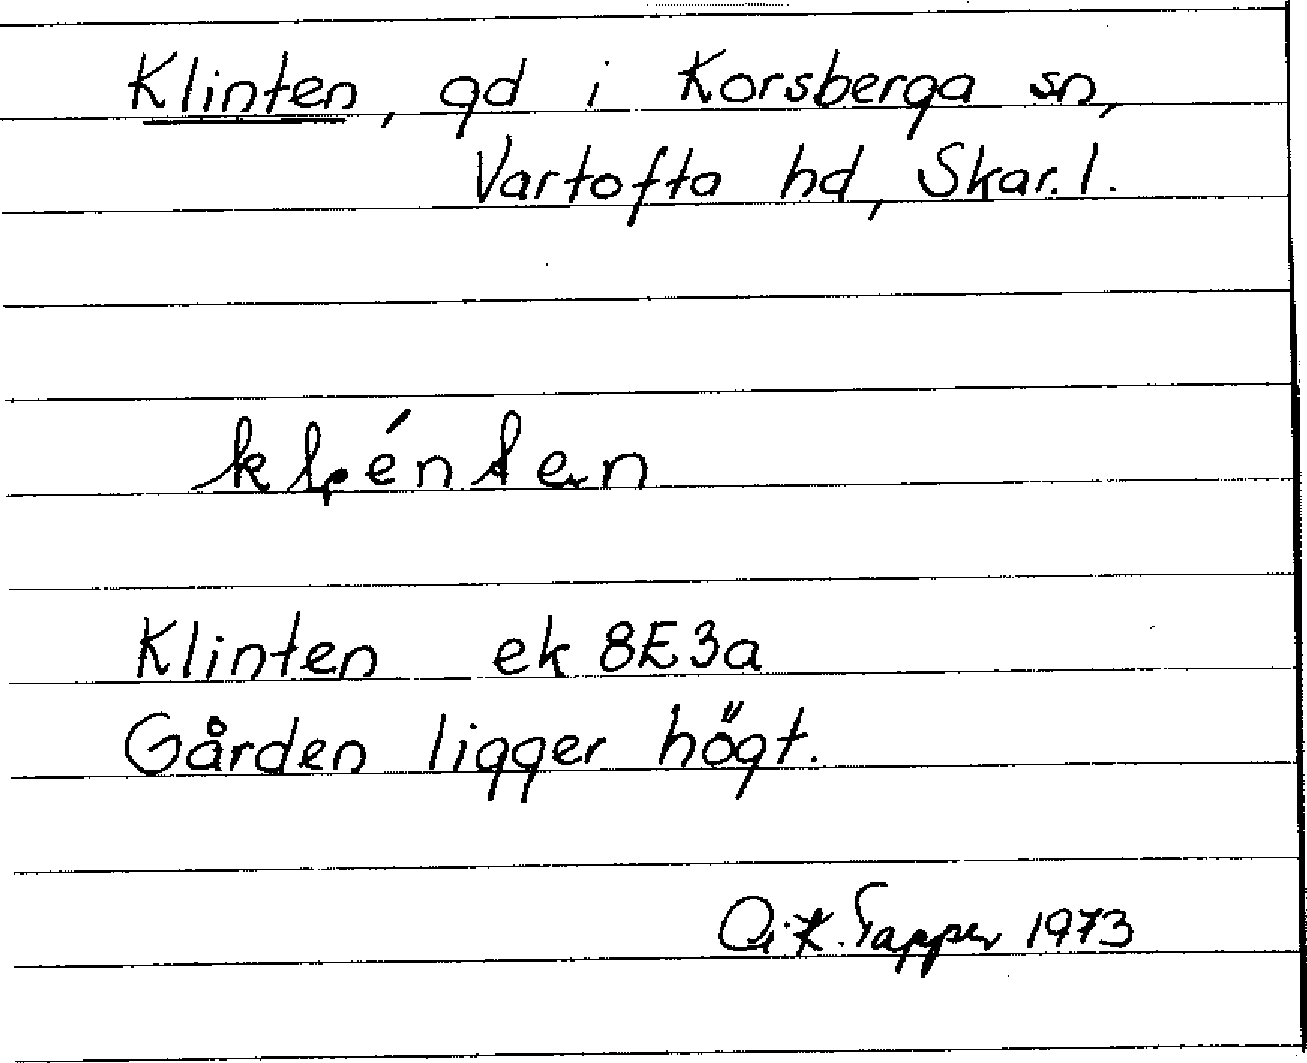 Klinten, gd i Korsberga sn,
Vartofta hd, Skar. l.
klénten
Klinten ek 8E3a
Gården ligger högt.
A-K. Tapper 1973